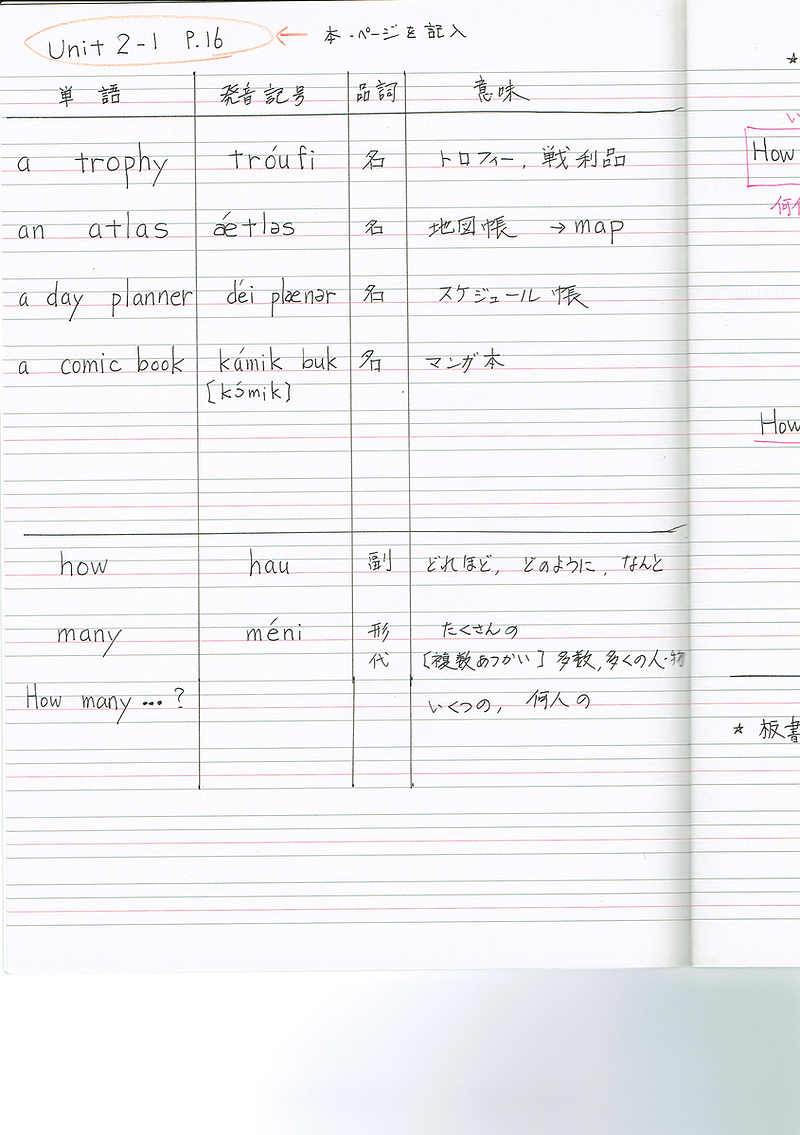 Unit 2-1 P.16 ← 本・ページを記入
単語 発音記号 品詞 意味
a trophy tróufi 名 トロフィー, 戦利品
an atlas ǽtləs 名 地図帳 →map
a day planner déi plænər 名 スケジュール帳
a comic book kámik buk 名 マンガ本
[kɔ́mik]
how hau 副 どれほど, どのように, なんと
many méni 形 たくさんの
代 [複数あつかい] 多数, 多くの人・物
How many …? いくつの, 何人の
★
い
How
何
How
★ 板書